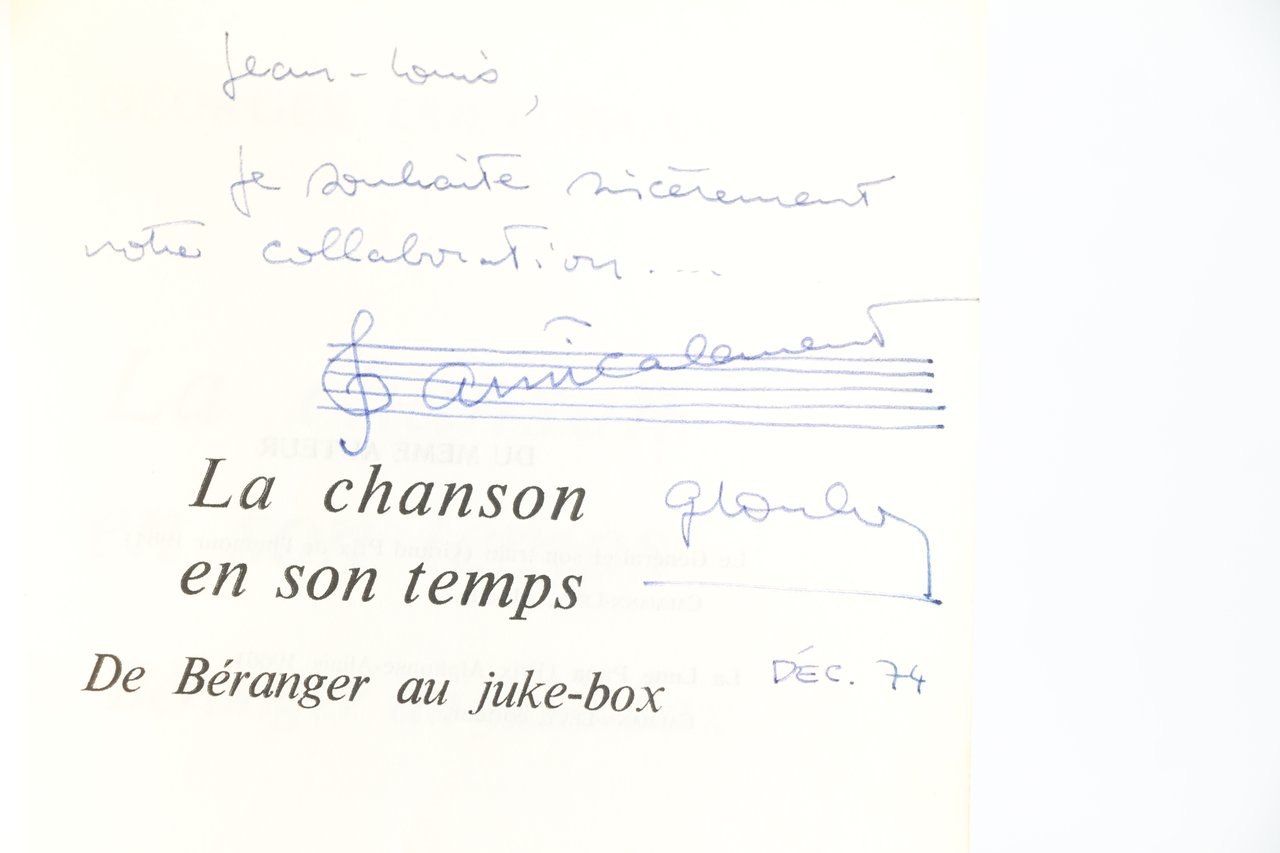 Jean-Louis,
Je souhaite sincèrement
notre collaboration....
amicalement
La chanson
en son temps
De Béranger au juke-box
DÉC. 74
DU MEME AUTEUR